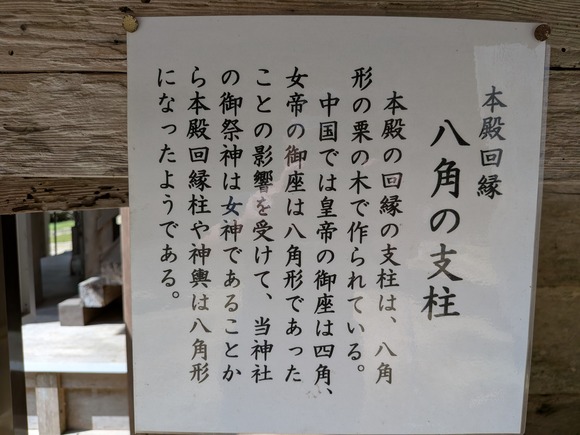 本殿回縁
八角の支柱
本殿の回縁の支柱は、八角
形の栗の木で作られている。
中国では皇帝の御座は四角、
女帝の御座は八角形であった
ことの影響を受けて、当神社
の御祭神は女神であることか
ら本殿回縁柱や神輿は八角形
になったようである。